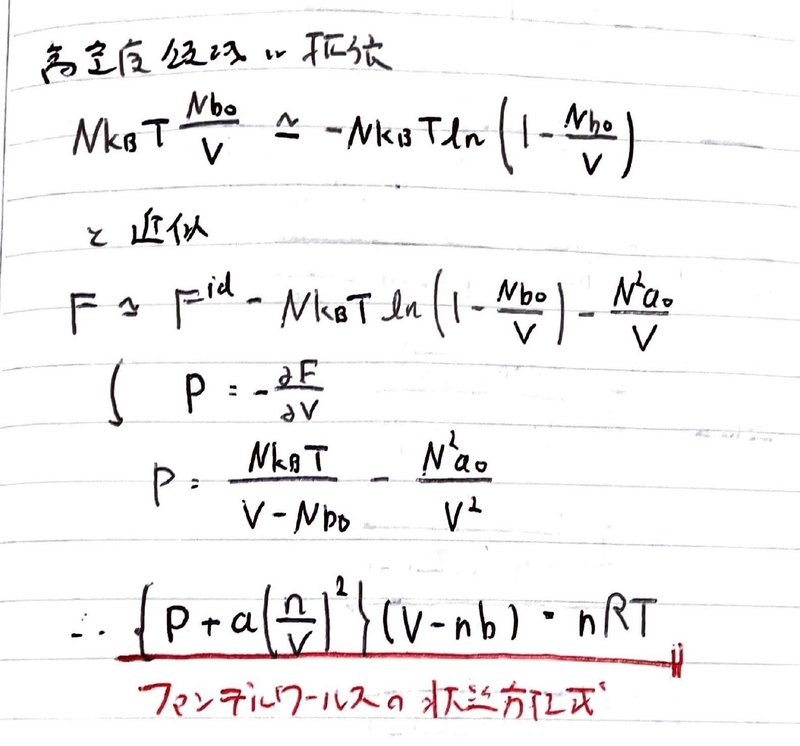 高密度領域に拡張
NkBT Nb₀/V ≃ -NkBT ln(1 - Nb₀/V)
と近似
F ≃ F^id - NkBT ln(1 - Nb₀/V) - N²a₀/V
P = -∂F/∂V
P = NkBT/(V - Nb₀) - N²a₀/V²
∴ {P + a(n/V)²}(V - nb) = nRT
ファンデルワールスの状態方程式